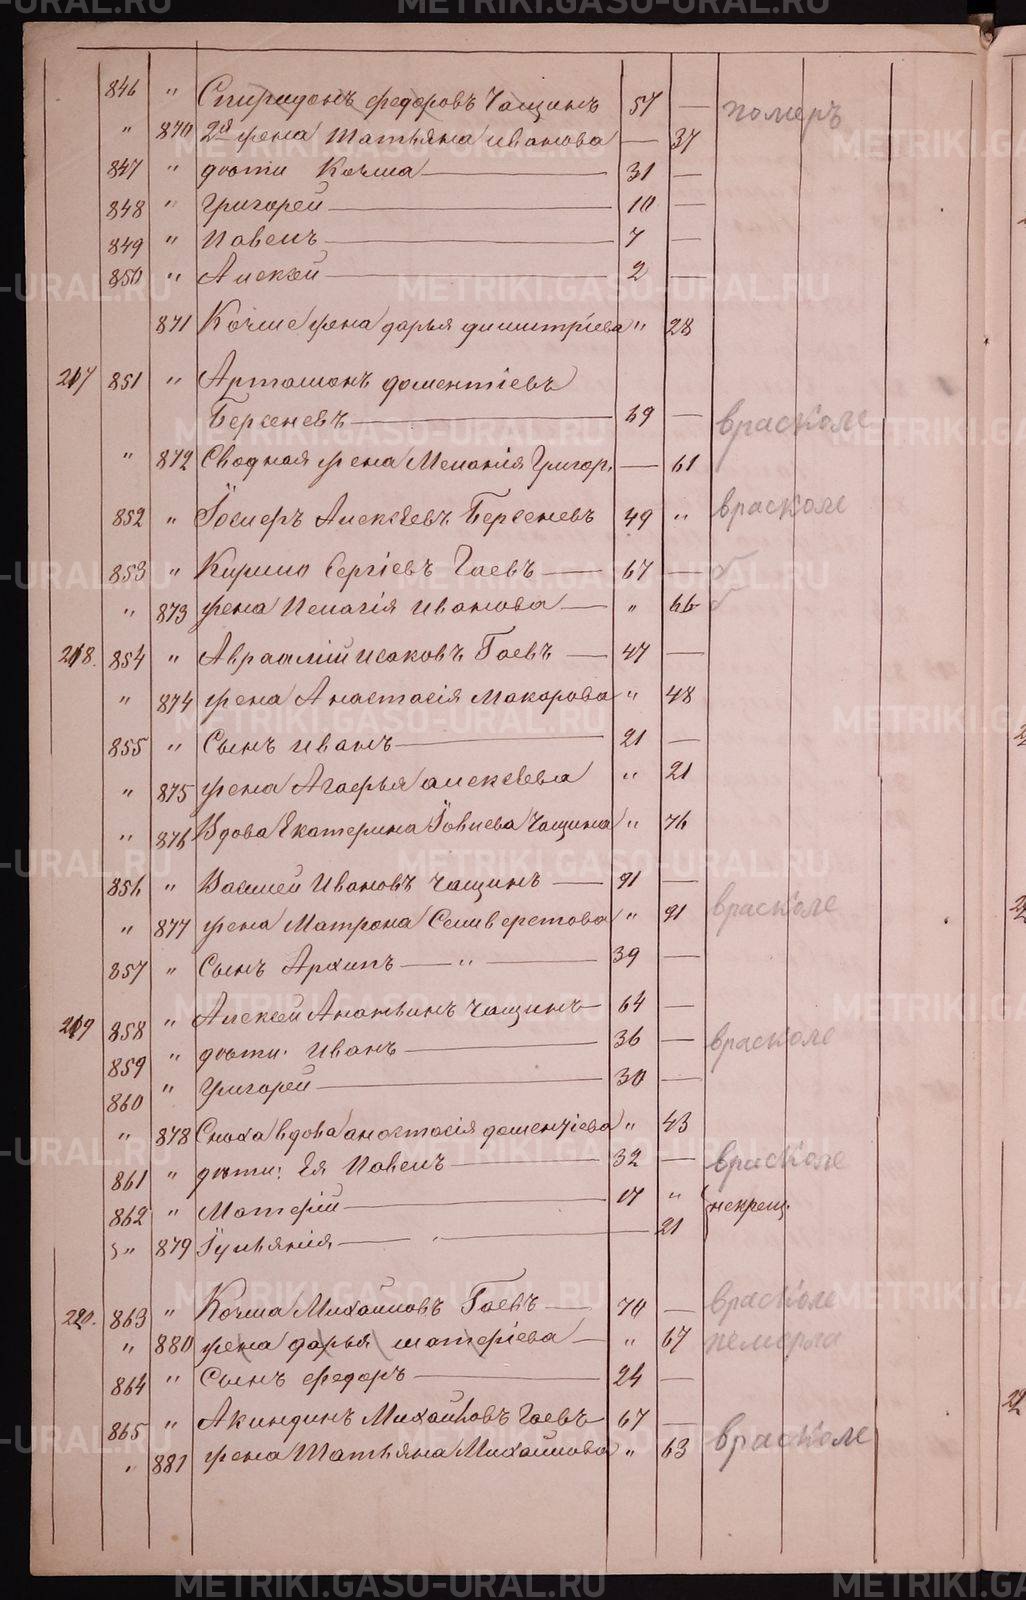 846 " Спиридонъ федоровъ Чащинъ 57 — померъ
" 870 2я жена Татьяна иванова — 37
847 " дѣти Козма — 31 —
848 " Григорей — 10 —
849 " Павелъ — 7 —
850 " Алексѣй — 2 —
871 Козмѣ жена дарья димитріева " 28
217 851 " Артамонъ доментіевъ
Берсеневъ — 69 — врасколе
" 872 Сводная жена Меланія Григор. — 61
852 " Іосифъ Алексѣевъ Берсеневъ 49 " врасколе
853 " Кирило Сергіевъ Гаевъ — 67 —
" 873 жена Пелагія иванова — " 66
218. 854 " Авраамій исаковъ Гаевъ — 47 —
" 874 жена Анастасія Макарова " 48
855 " Сынъ иванъ — 21 —
" 875 жена Агафья алексѣева " 21
" 876 Вдова Екатерина Іовлева Чащина " 76
856 " Василей Ивановъ Чащинъ — 91 —
" 877 жена Матрона Селиверстова " 91 врасколе
857 " Сынъ Архипъ — " — 39 —
219 858 " Алексѣй Ананьинъ Чащинъ — 64 —
859 " дѣти: Иванъ — 36 — врасколе
860 " Григорей — 30 —
" 878 Сноха вдова анастасія доментіева " 43
861 " дѣти: Ея Павелъ — 32 — врасколе
862 " Матфей — 17 " некрещ.
" 879 Гульянія — 21
220. 863 " Козма Михаиловъ Гаевъ — 70 — врасколе
" 880 жена дарья матфіева — " 67 померла
864 " Сынъ федоръ — 24 —
865 " Акиндинъ Михайловъ Гаевъ 67 —
" 881 жена Татьяна Михаилова " 63 врасколе
METRIKI.GASO-URAL.RU